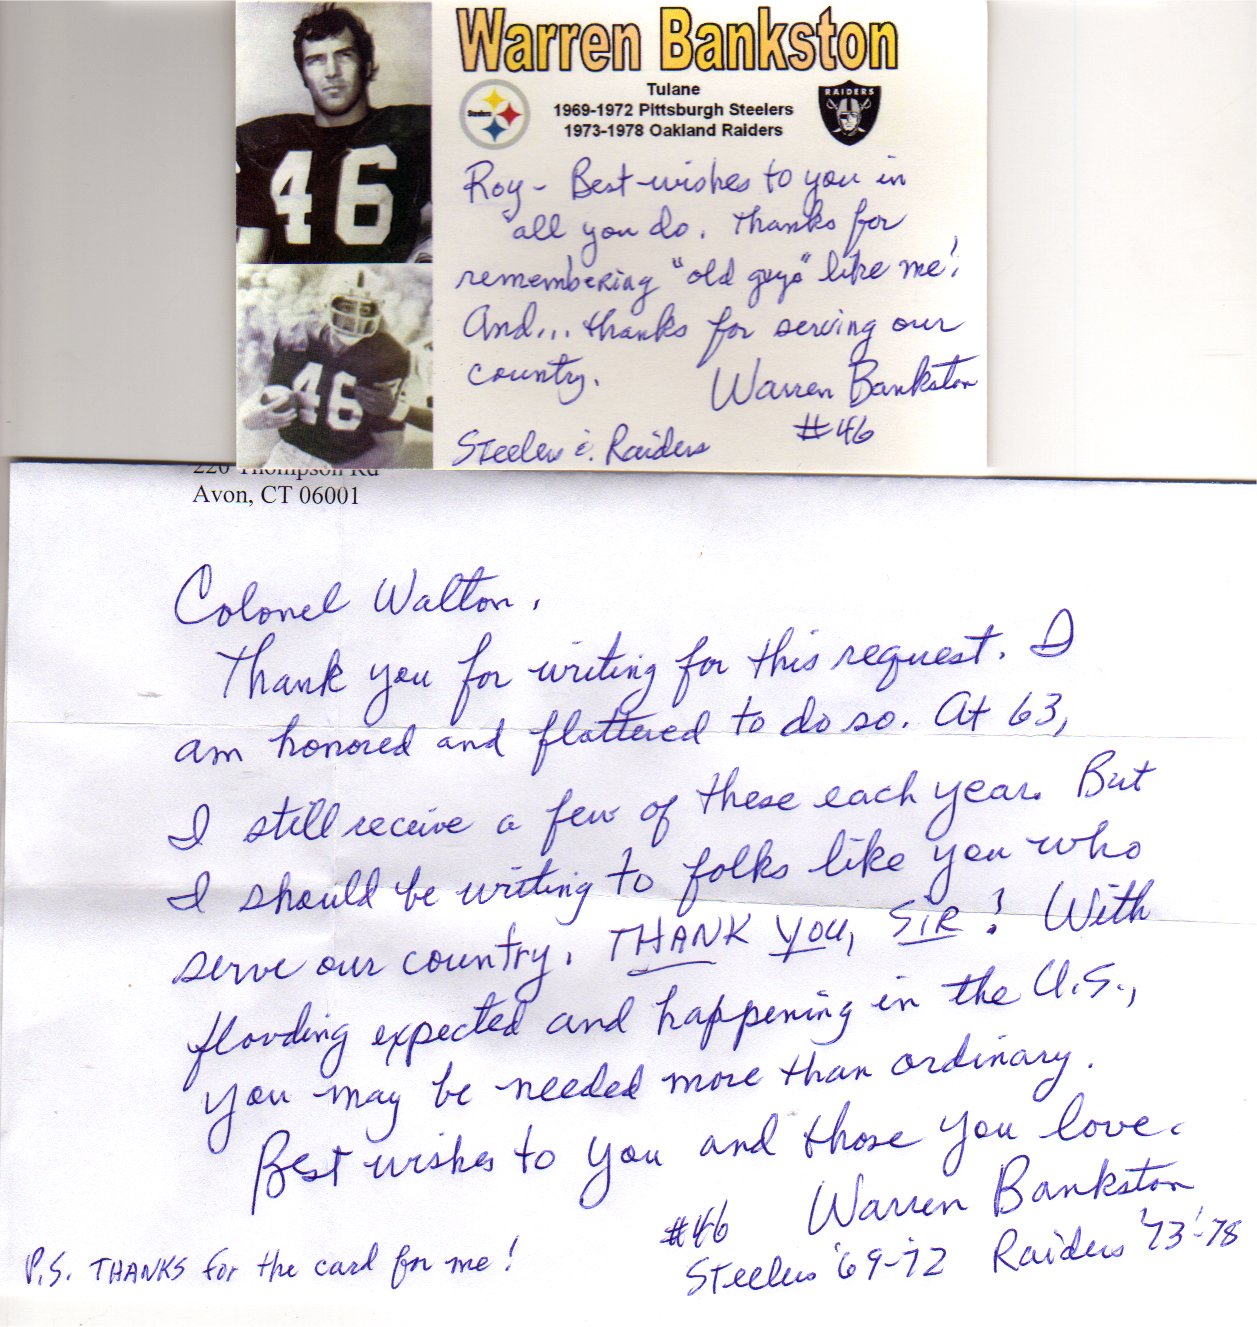 Warren Bankston
Tulane
1969-1972 Pittsburgh Steelers
1973-1978 Oakland Raiders
Steelers
RAIDERS
46
46
Roy - Best wishes to you in
all you do. Thanks for
remembering "old guys" like me!
And... thanks for serving our
country.
Warren Bankston
#46
Steelers & Raiders
220 Thompson Rd
Avon, CT 06001
Colonel Walton,
Thank you for writing for this request. I
am honored and flattered to do so. At 63,
I still receive a few of these each year. But
I should be writing to folks like you who
serve our country. THANK YOU, SIR! With
flooding expected and happening in the U.S.,
you may be needed more than ordinary.
Best wishes to you and those you love.
Warren Bankston
#46
Steelers '69-72 Raiders '73-'78
P.S. THANKS for the card for me!